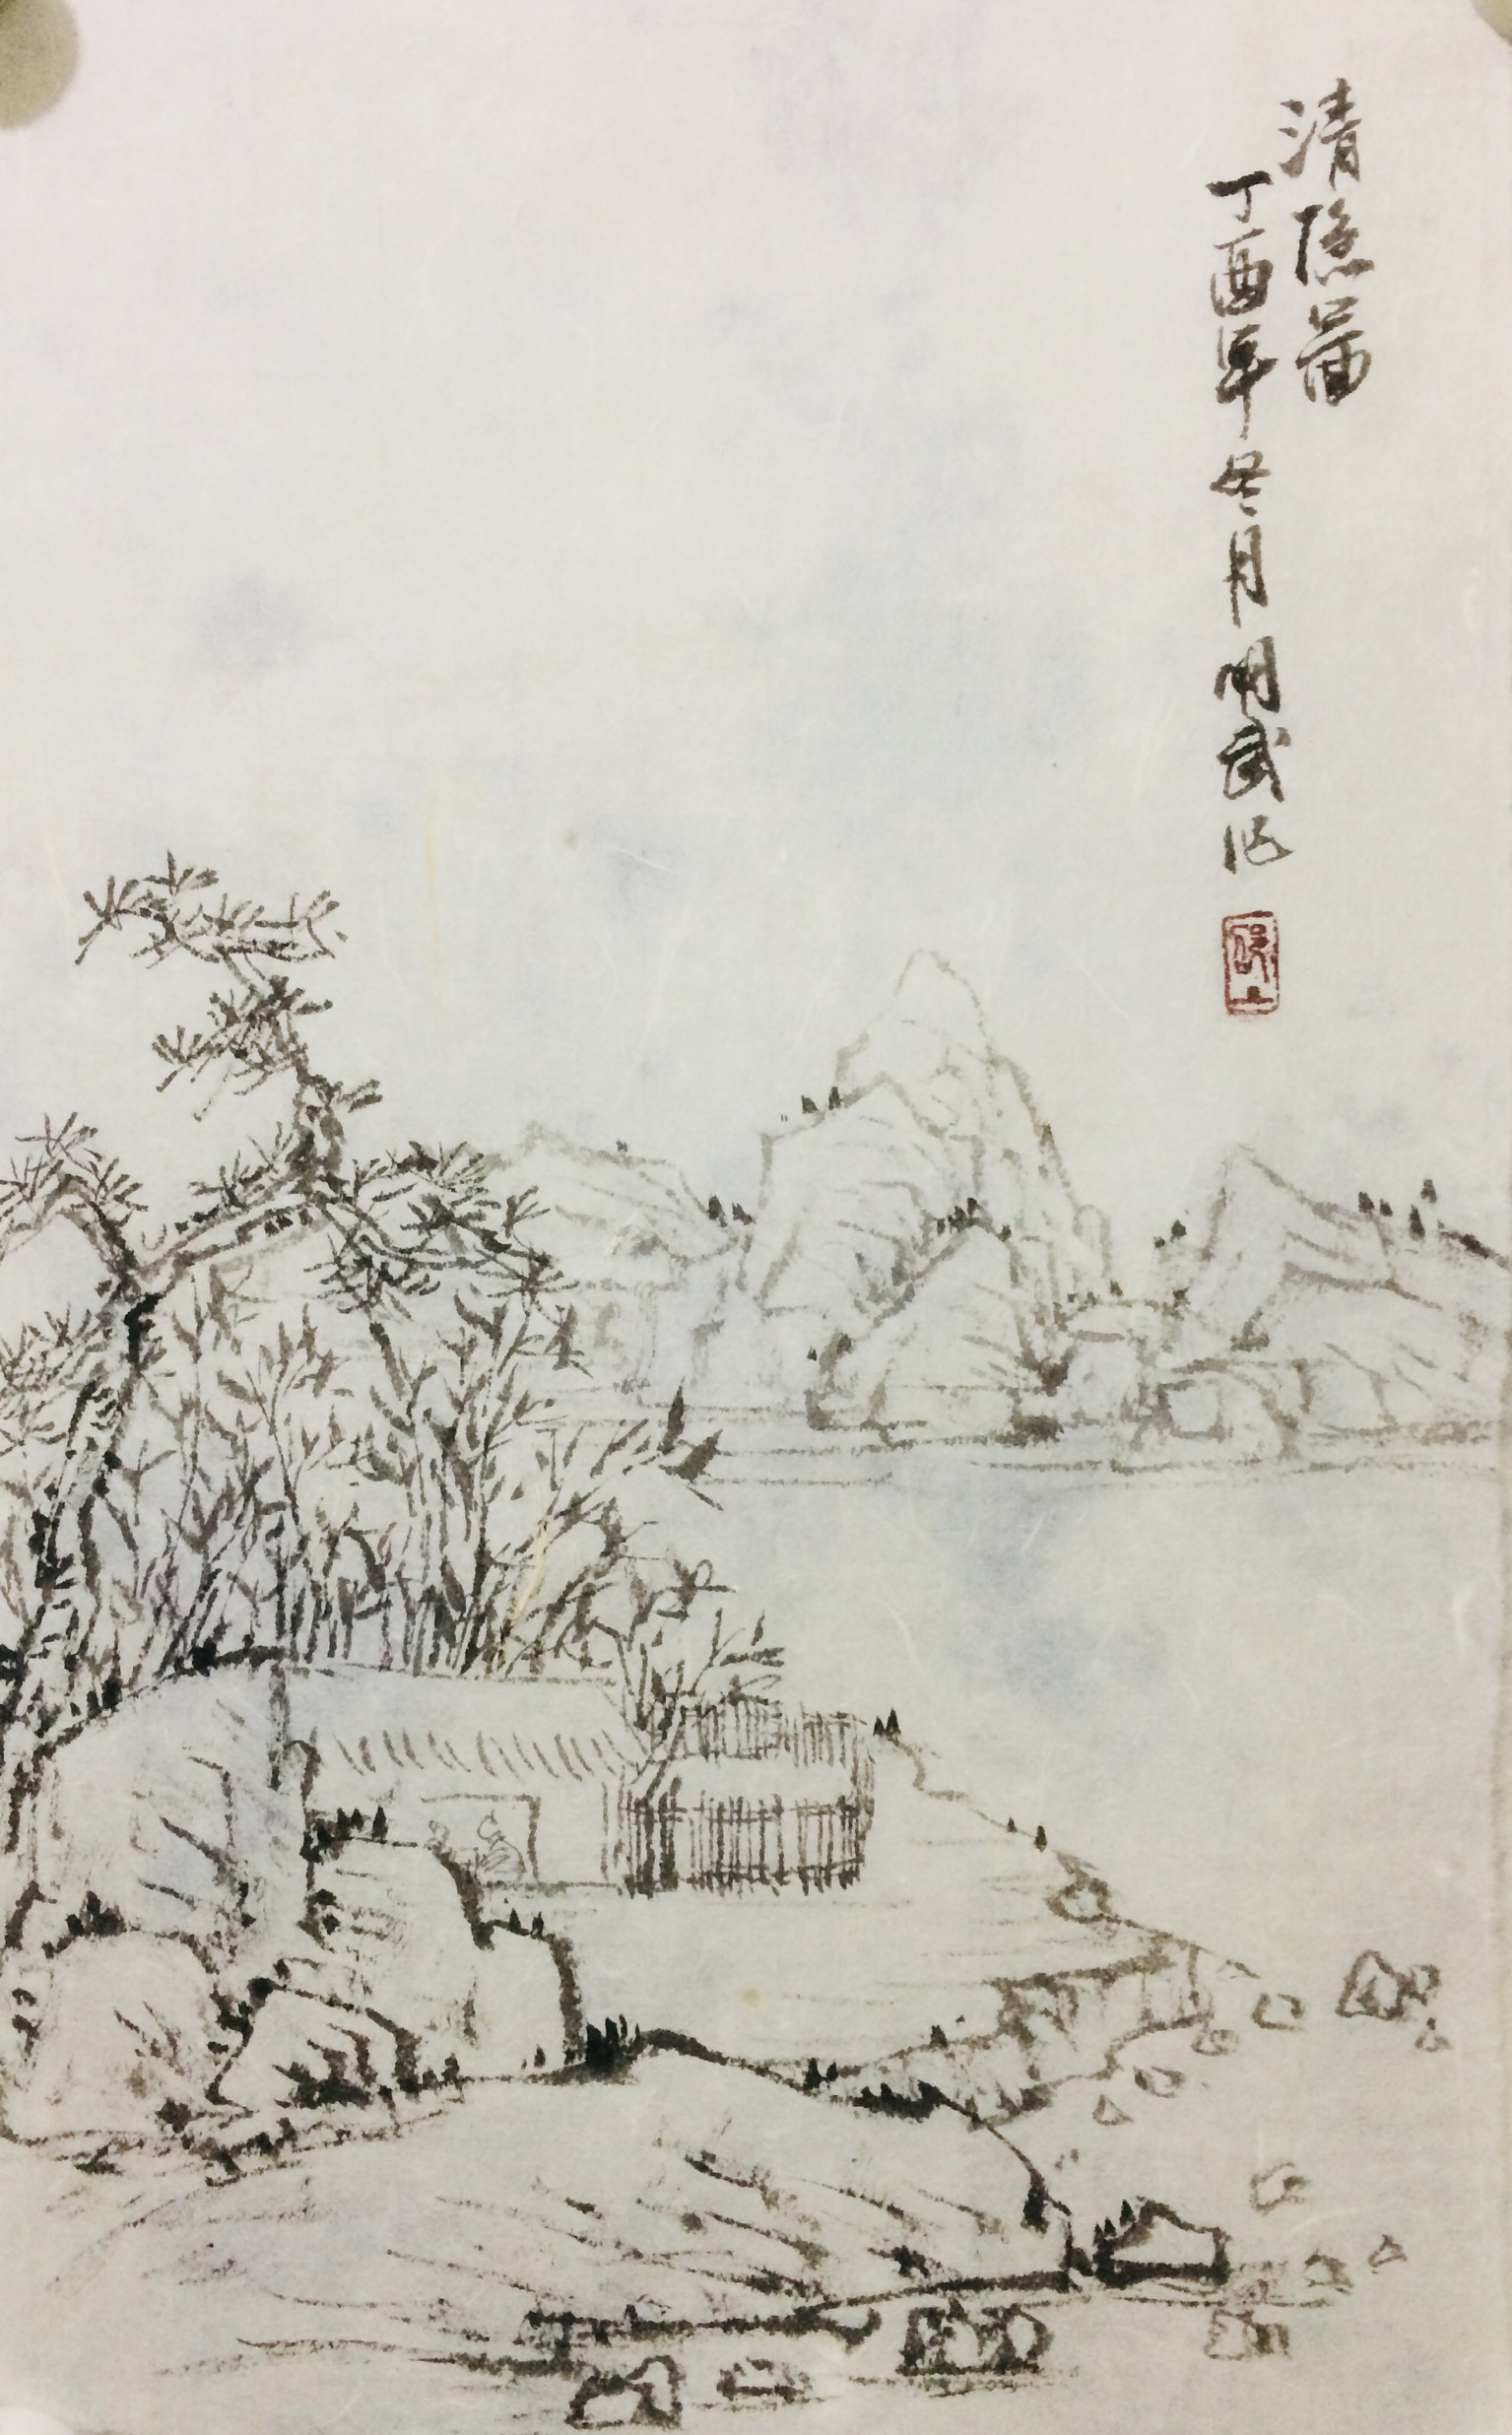 清隐啚
丁酉年冬月周武作